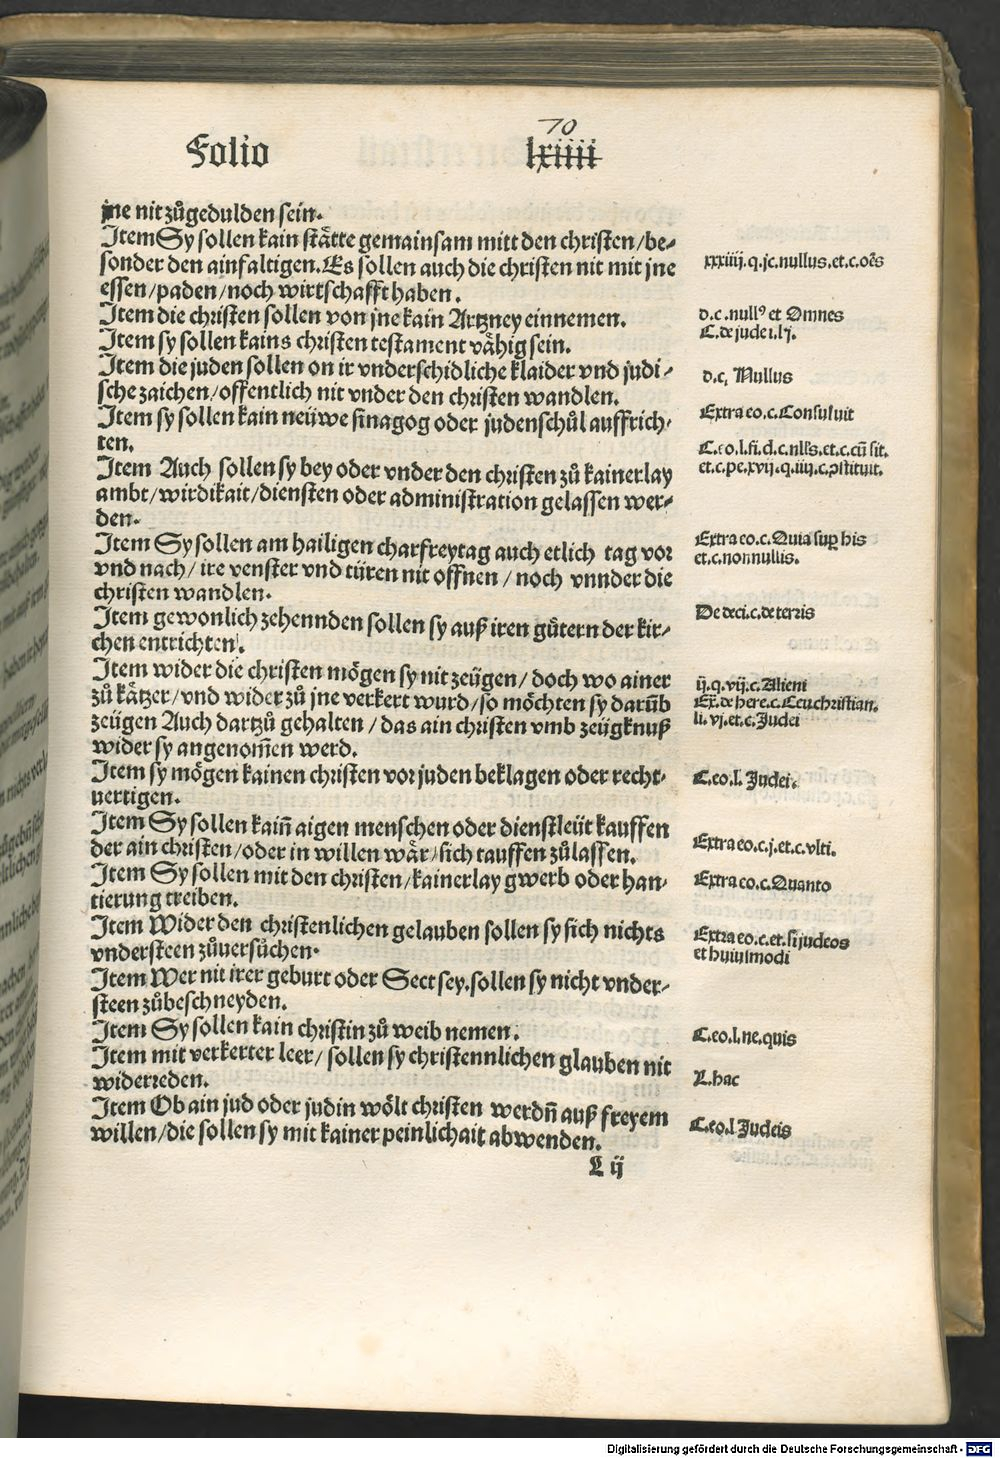 70
Folio lxiiii
jne nit zůgedulden sein.
Item Sy sollen kain stätte gemainsam mitt den christen/be⸗
sonder den ainfaltigen. Es sollen auch die christen nit mit jne
essen/paden/noch wirtschafft haben.
Item die christen sollen von jne kain Artzney einnemen.
Item sy sollen kains christen testament vähig sein.
Item die juden sollen on ir vnderschidliche klaider vnd judi⸗
sche zaichen/offentlich nit vnder den christen wandlen.
Item sy sollen kain neüwe sinagog oder judenschůl auffrich⸗
ten.
Item Auch sollen sy bey oder vnder den christen zů kainerlay
ambt/wirdikait/diensten oder administration gelassen wer⸗
den.
Item Sy sollen am hailigen charfreytag auch etlich tag vor
vnd nach/ire venster vnd türen nit offnen/noch vnnder die
christen wandlen.
Item gewonlich zehennden sollen sy auß iren gůtern der kir⸗
chen entrichten.
Item wider die christen mögen sy nit zeügen/doch wo ainer
zů kätzer/vnd wider zů jne verkert wurd/so möchten sy darūb
zeügen Auch dartzů gehalten/das ain christen vmb zeügknuß
wider sy angenom̄en werd.
Item sy mögen kainen christen vor juden beklagen oder recht⸗
uertigen.
Item Sy sollen kain̄ aigen menschen oder dienstleüt kauffen
der ain christen/oder in willen wär/sich tauffen zůlassen.
Item Sy sollen mit den christen/kainerlay gwerb oder han⸗
tierung treiben.
Item Wider den christenlichen gelauben sollen sy sich nichts
vndersteen zůuersůchen.
Item Wer nit irer geburt oder Sect sey, sollen sy nicht vnder⸗
steen zůbeschneyden.
Item Sy sollen kain christin zů weib nemen.
Item mit verkerter leer/sollen sy christennlichen glauben nit
widerreden.
Item Ob ain jud oder judin wölt christen werdn̄ auß freyem
willen/die sollen sy mit kainer peinlichait abwenden.
L ij
xxxiiij.q.jc.nullus.et.c.oēs
d.c.nullꝰ et Omnes
C.de judei.l j.
d.c. Nullus
Extra eo.c.Consuluit
C.eo.l.fi.d.c.nlľs.et.c.cū sit.
et.c.pe.xvij.q.iiij.c.ꝯstituit.
Extra eo.c.Quia suꝑ his
et.c.nonnullis.
De deci.c.de terris
ij.q.vij.c.Alieni
Ex̄.de here.c.Ceu christian.
li.vj.et.c.Judei
C.eo.l.Judei.
Extra eo.c.j.et.c.vlti.
Extra eo.c.Quanto
Extra eo.c.et.si judeos
et huiusmodi
C.eo.l.ne.quis
L.hac
C.eo.l Judeis
Digitalisierung gefördert durch die Deutsche Forschungsgemeinschaft - DFG